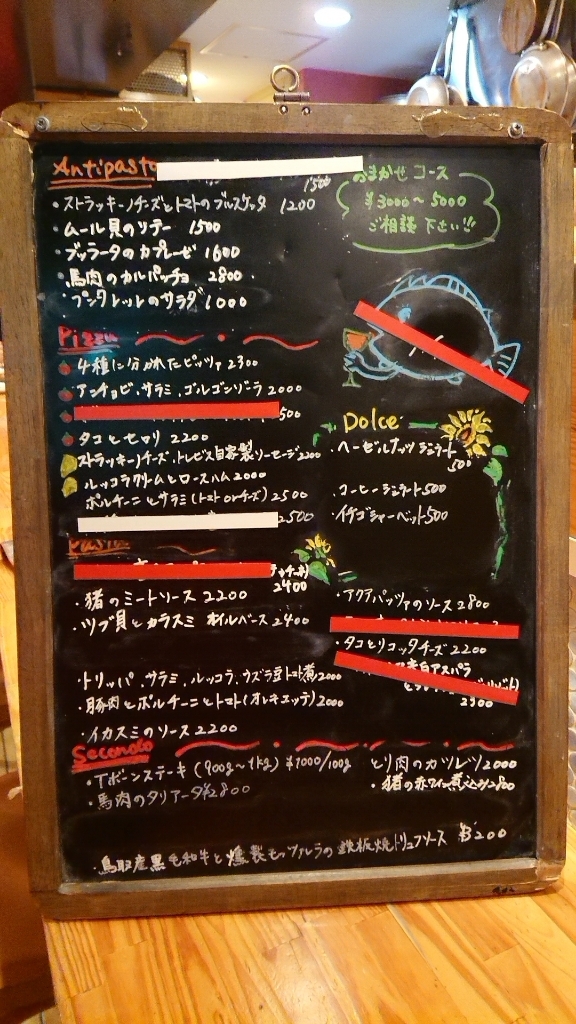 Antipasto
1500
・ストラッキーノチーズとトマトのブルスケッタ 1200
・ムール貝のソテー 1500
・ブッラータのカプレーゼ 1600
・馬肉のカルパッチョ 2800
・プンタレッレのサラダ 1000
おまかせ コース
¥3000～5000
ご相談 下さい!!
Pizza
4種に分かれたピッツァ 2300
アンチョビ、サラミ、ゴルゴンゾーラ 2000
500
タコとセロリ 2200
ストラッキーノチーズ、トレビス自家製ソーセージ 2200
ルッコラクリームとロースハム 2000
ポルチーニとサラミ(トマト orチーズ) 2500
2500
Dolce
・ヘーゼルナッツ ジェラート
500
・コーヒージェラート 500
・イチゴシャーベット 500
Pasta
2400
・猪のミートソース 2200
・ツブ貝とカラスミ オイルベース 2400
・トリッパ、サラミ、ルッコラ、ウズラ豆トマト煮 2000
・豚肉とポルチーニとトマト(オレキエッテ) 2000
・イカスミのソース 2200
・アクアパッツァのソース 2800
・タコとリコッタチーズ 2200
アスパラ
2300
Secondo
・Tボーンステーキ (900g～1kg) ¥1000/100g
・馬肉のタリアータ ¥2800
とり肉のカツレツ 2000
・猪の赤ワイン煮込み 2800
・鳥取産黒毛和牛と燻製モッツァレラの鉄板焼トリュフソース ¥3200